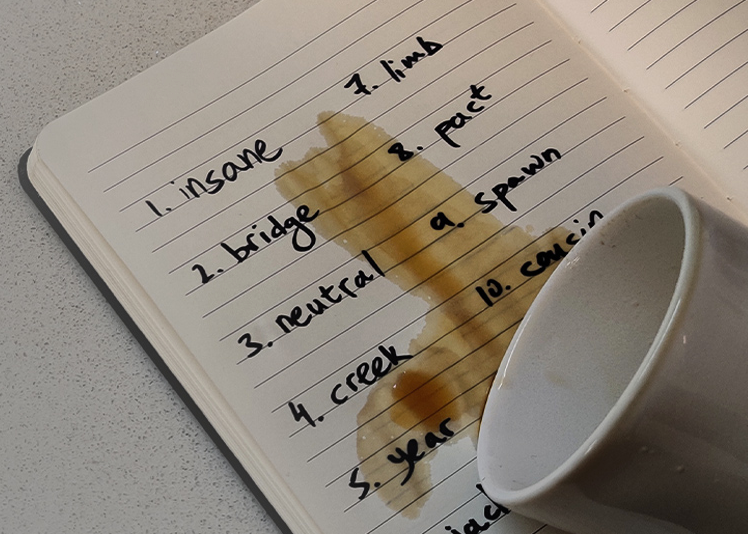 1. insane
2. bridge
3. neutral
4. creek
5. year
7. limb
8. pact
9. spawn
10. cousin